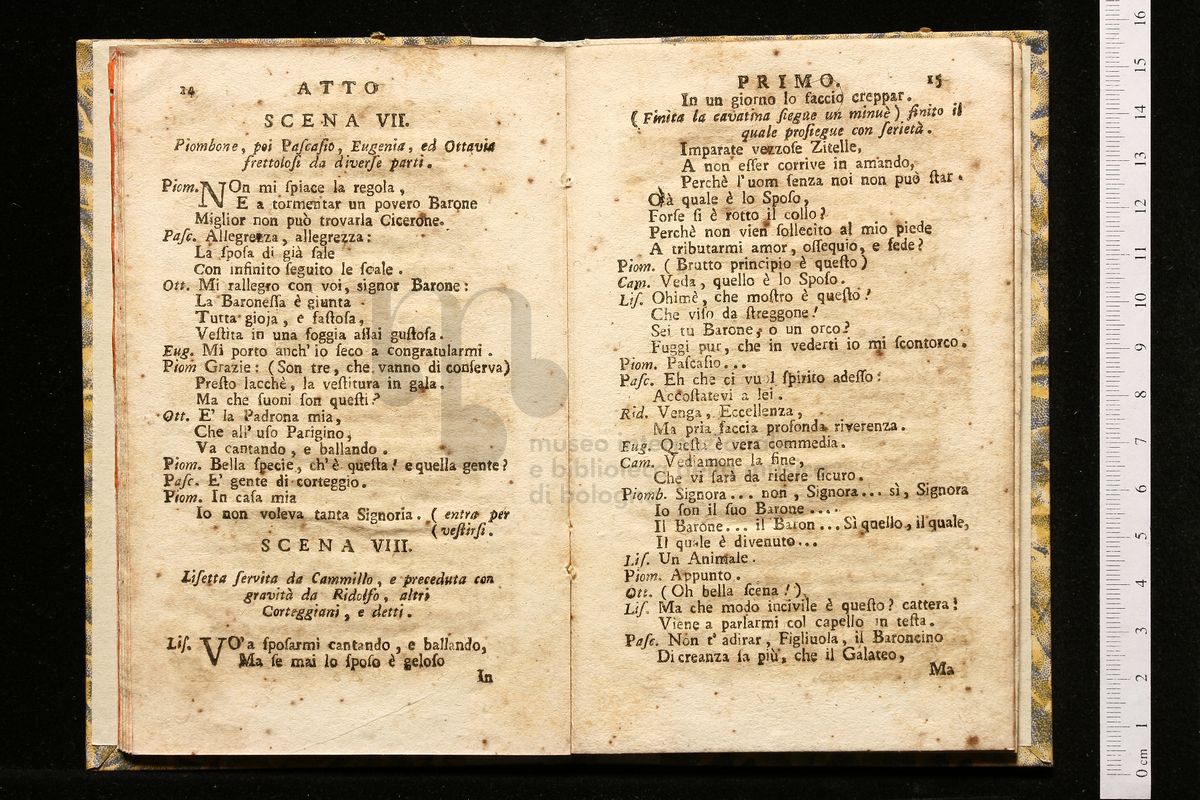 14 ATTO
SCENA VII.
Piombone, poi Paſcaſio, Eugenia, ed Ottavia
frettoloſi da diverſe parti.
Piom. NOn mi ſpiace la regola,
E a tormentar un povero Barone
Miglior non può trovarla Cicerone.
Paſc. Allegrezza, allegrezza:
La ſpoſa di già ſale
Con infinito ſeguito le ſcale.
Ott. Mi rallegro con voi, signor Barone:
La Baroneſſa è giunta
Tutta gioja, e faſtoſa,
Veſtita in una foggia aſſai guſtoſa.
Eug. Mi porto anch' io ſeco a congratularmi.
Piom Grazie: (Son tre, che vanno di conſerva)
Preſto lacchè, la veſtitura in gala.
Ma che ſuoni ſon queſti?
Ott. E' la Padrona mia,
Che all' uſo Parigino,
Va cantando, e ballando.
Piom. Bella ſpecie, ch' è queſta! e quella gente?
Paſc. E' gente di corteggio.
Piom. In caſa mia
Io non voleva tanta Signoria. (entra per
(veſtirſi.
SCENA VIII.
Liſetta ſervita da Cammillo, e preceduta con
gravità da Ridolfo, altri
Corteggiani, e detti.
Liſ. VO' a ſpoſarmi cantando, e ballando,
Ma ſe mai lo ſpoſo è geloſo
In
PRIMO. 15
In un giorno lo faccio creppar.
(Finita la cavatina ſiegue un minuè) finito il
quale proſiegue con ſerietà.
Imparate vezzoſe Zitelle,
A non eſſer corrive in amando,
Perchè l'uom ſenza noi non può ſtar.
Olà quale è lo Spoſo,
Forſe ſi è rotto il collo?
Perchè non vien ſollecito al mio piede
A tributarmi amor, oſſequio, e fede?
Piom. (Brutto principio è queſto)
Cam. Veda, quello è lo Spoſo.
Liſ. Ohimè, che moſtro è queſto!
Che viſo da ſtreggone!
Sei tu Barone, o un orco?
Fuggi pur, che in vederti io mi ſcontorco.
Piom. Paſcaſio...
Paſc. Eh che ci vuol ſpirito adeſſo:
Accoſtatevi a lei.
Rid. Venga, Eccellenza,
Ma pria faccia profonda riverenza.
Eug. Queſta è vera commedia.
Cam. Vediamone la fine,
Che vi ſarà da ridere ſicuro.
Piomb. Signora... non, Signora... sì, Signora
Io ſon il ſuo Barone....
Il Barone... il Baron... Sì quello, il quale,
Il quale è divenuto...
Liſ. Un Animale.
Piom. Appunto.
Ott. (Oh bella ſcena!)
Liſ. Ma che modo incivile è queſto? cattera!
Viene a parlarmi col capello in teſta.
Paſc. Non t' adirar, Figliuola, il Baroncino
Di creanza ſa più, che il Galateo,
Ma
museo
e biblioteca
di bologna
0 cm 1 2 3 4 5 6 7 8 9 10 11 12 13 14 15 16